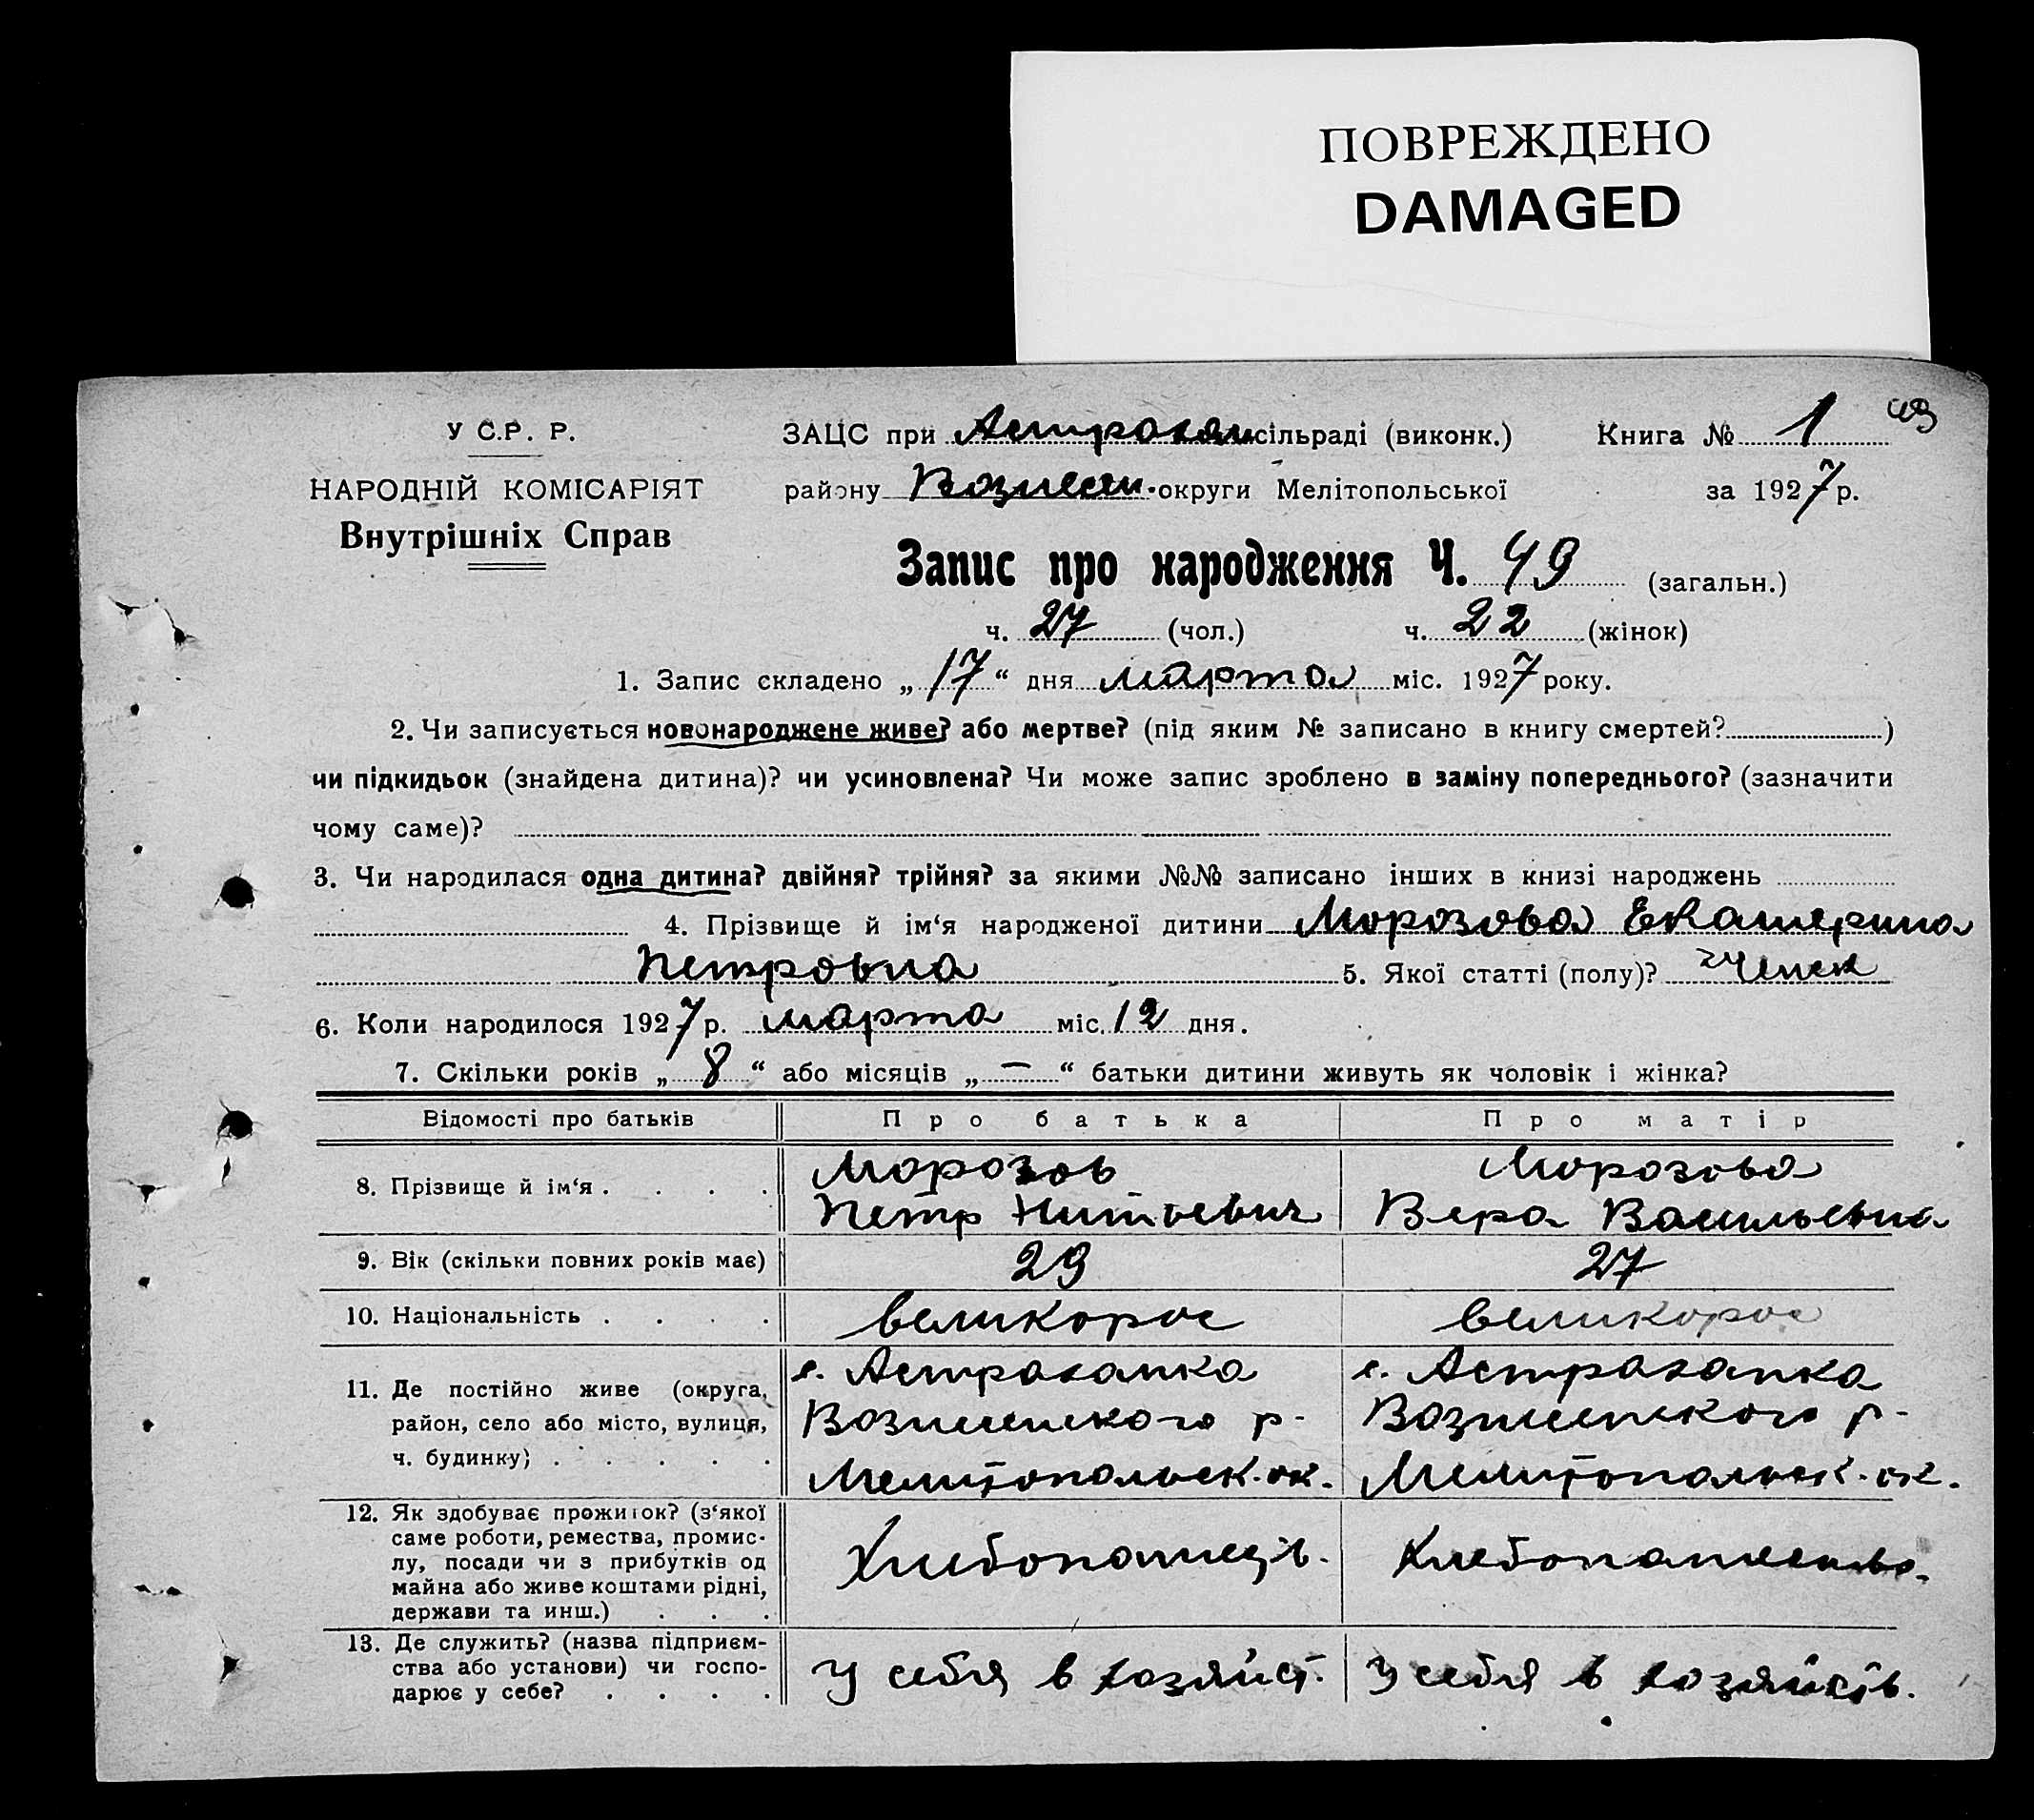 ПОВРЕЖДЕНО
DAMAGED
У С.Р. Р.
НАРОДНІЙ КОМІСАРІЯТ
Внутрішніх Справ
ЗАЦС при Астрахан сільраді (виконк.) Книга № 1 49
району Вознесен. округи Мелітопольської за 1927 р.
Запис про народження Ч. 49 (загальн.)
ч. 27 (чол.) ч. 22 (жінок)
1. Запис складено „17“ дня марта міс. 1927 року.
2. Чи записується новонароджене живе? або мертве? (під яким № записано в книгу смертей? )
чи підкидьок (знайдена дитина)? чи усиновлена? Чи може запис зроблено в заміну попереднього? (зазначити
чому саме)?
3. Чи народилася одна дитина? двійня? трійня? за якими №№ записано інших в книзі народжень
4. Прізвище й ім‘я народженої дитини Морозова Екатерина
Петровна 5. Якої статті (полу)? Женск
6. Коли народилося 1927 р. марта міс. 12 дня.
7. Скільки років „8“ або місяців „—“ батьки дитини живуть як чоловік і жінка?
Відомості про батьків Про батька Про матір
8. Прізвище й ім‘я . . . .
Морозов
Петр Титьевич
Морозова
Вера Васильевна
9. Вік (скільки повних років має) 29 27
10. Національність . . . . великорос великорос
11. Де постійно живе (округа,
район, село або місто, вулиця,
ч. будинку) . . . . .
с. Астраханка
Вознесенского р-
Мелитопольск. ок.
с. Астраханка
Вознесенского р-
Мелитопольск. ок.
12. Як здобуває прожиток? (з‘якої
саме роботи, ремества, промис-
лу, посади чи з прибутків од
майна або живе коштами рідні,
держави та инш.) . . .
Хлебопашец.
Хлебопашество.
13. Де служить? (назва підприєм-
ства або установи) чи госпо-
дарює у себе? . . . .
У себя в хозяйст.
У себя в хозяйств.